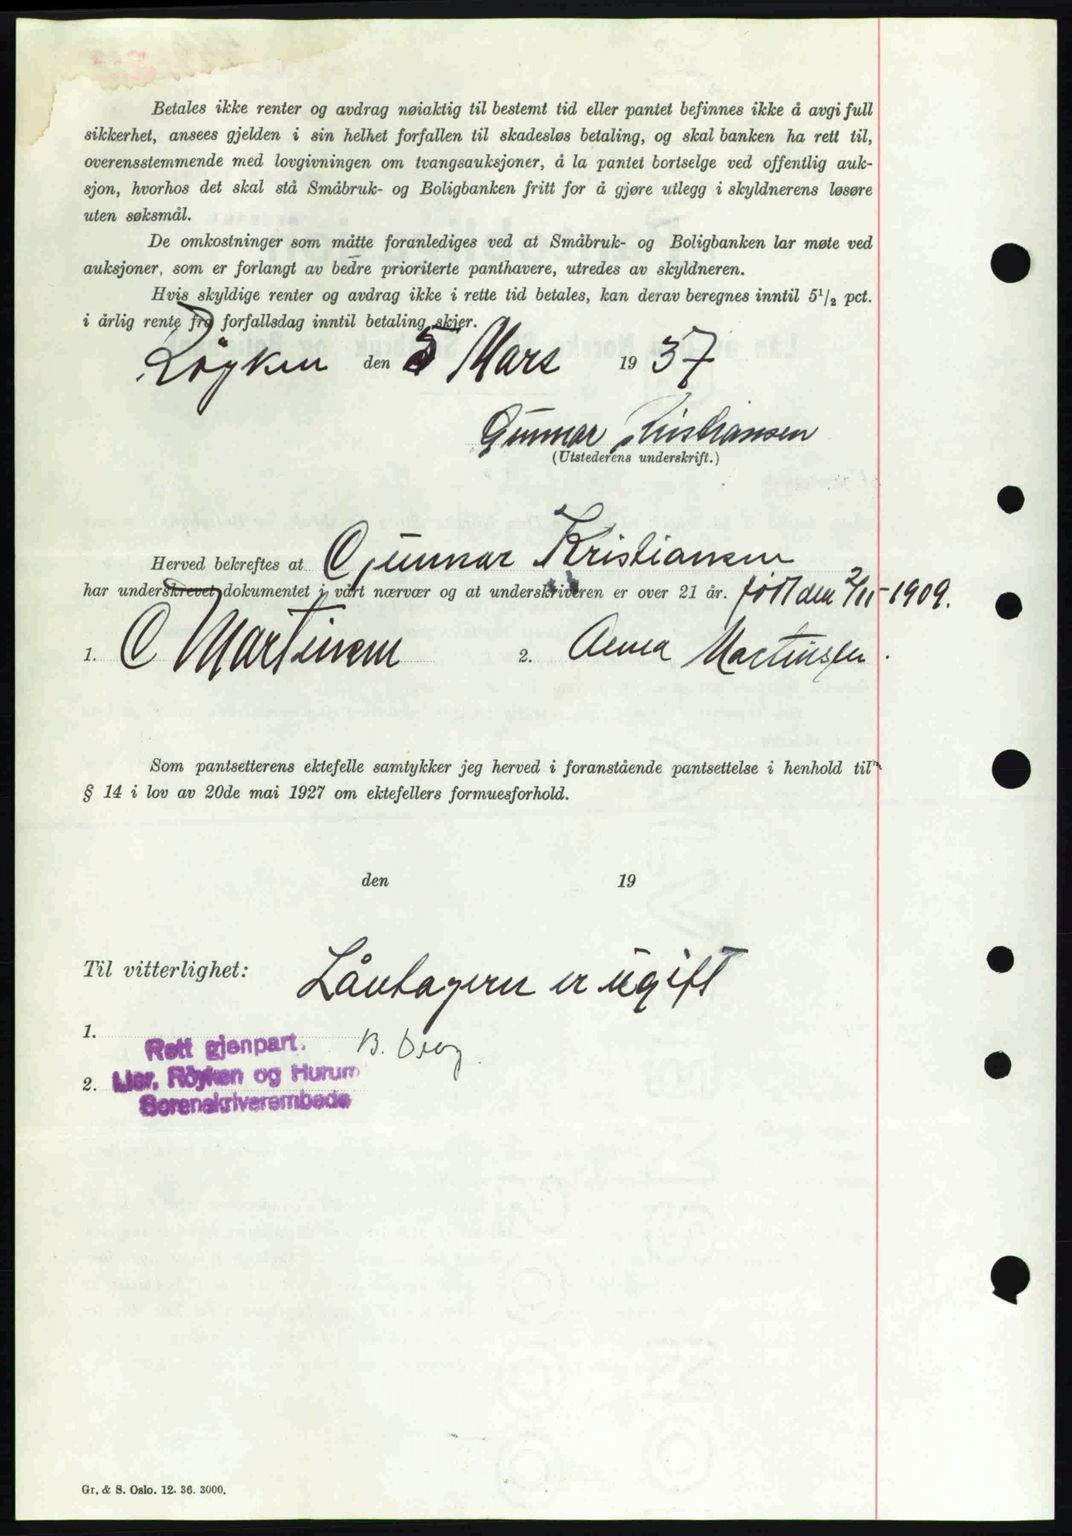 Betales ikke renter og avdrag nøiaktig til bestemt tid eller pantet befinnes ikke å avgi full
sikkerhet, ansees gjelden i sin helhet forfallen til skadesløs betaling, og skal banken ha rett til,
overensstemmende med lovgivningen om tvangsauksjoner, å la pantet bortselge ved offentlig auk-
sjon, hvorhos det skal stå Småbruk- og Boligbanken fritt for å gjøre utlegg i skyldnerens løsøre
uten søksmål.
De omkostninger som måtte foranlediges ved at Småbruk- og Boligbanken lar møte ved
auksjoner, som er forlangt av bedre prioriterte panthavere, utredes av skyldneren.
Hvis skyldige renter og avdrag ikke i rette tid betales, kan derav beregnes inntil 5 1/2 pct.
i årlig rente fra forfallsdag inntil betaling skjer.
Röyken den 5 Mars 1937
Gunnar Kristiansen
(Utstederens underskrift.)
Herved bekreftes at Gunnar Kristiansen
har underskrevet dokumentet i vårt nærvær og at underskriveren er over 21 år. født den 2/11-1909.
1. C Martinsen 2. Anna Martinsen.
Som pantsetterens ektefelle samtykker jeg herved i foranstående pantsettelse i henhold til
§ 14 i lov av 20de mai 1927 om ektefellers formuesforhold.
den 19
Til vitterlighet: Låntageren er ugift
1.
Rett gjenpart.
2. Lier, Röyken og Hurum
Sorenskriverembede
Gr. & S. Oslo. 12. 36. 3000.